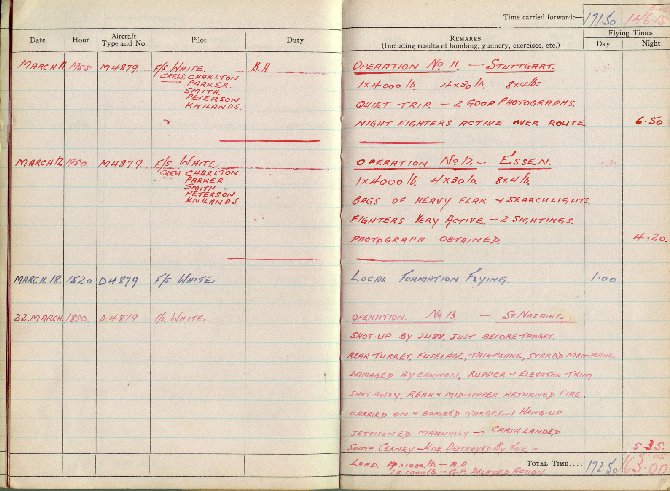 Time carried forward:— 171.50
Date Hour Aircraft Type and No Pilot Duty REMARKS (Including results of bombing, gunnery, exercises, etc.) Flying Times
Day Night
MARCH 11. 1955 M4879 F/S WHITE. B.A OPERATION No 11 — STUTTGART.
CREW CHARLTON 1X4000 lb.
PARKER.
SMITH. QUIET TRIP — 2 GOOD PHOTOGRAPHS.
PETERSON
NIGHT FIGHTERS ACTIVE OVER ROUTE 6.50
MARCH 12. 1950 M4879 F/S WHITE OPERATION No 12 — ESSEN.
CREW CHARLTON 1X4000 lb. 4X30 lb. 8X4 lb.
PARKER
SMITH BAGS OF HEAVY FLAK & SEARCHLIGHTS.
PETERSON
FIGHTERS VERY ACTIVE. — 2 SIGHTINGS.
PHOTOGRAPH OBTAINED 4.20.
MARCH 18. 1520 D4879 F/S WHITE. LOCAL FORMATION FLYING. 1.00
22. MARCH. 1850. D4879 F/S WHITE. OPERATION No 13 — ST. NAZAIRE.
SHOT-UP BY JU88, JUST BEFORE TARGET.
REAR TURRET, FUSELAGE, TAILPLANE,
DAMAGED BY CANNON, RUDDER & ELEVATOR TRIM
SHOT AWAY. REAR & MID-UPPER RETURNED FIRE.
CARRIED ON & BOMBED TARGET — 1 HANG-UP
JETTISONED MANUALLY — CRASH LANDED
SOUTH CERNEY 5.35.
LOAD TOTAL TIME.... 172.50
DELAYED ACTION